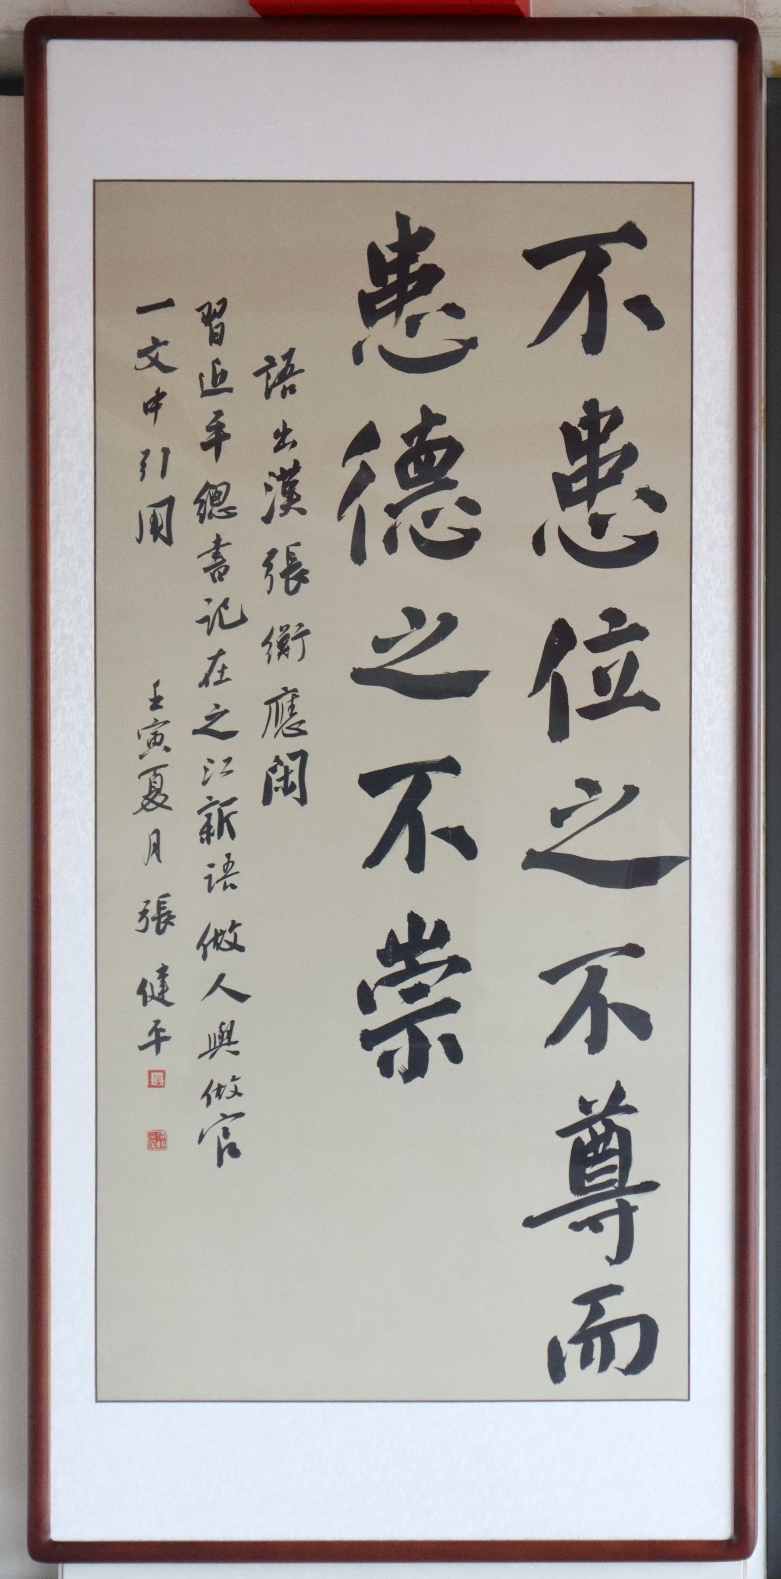 不患位之不尊而
患德之不崇
語出漢張衡應閑
習近平總書記在之江新語做人與做官
一文中引用
壬寅夏月 張健平